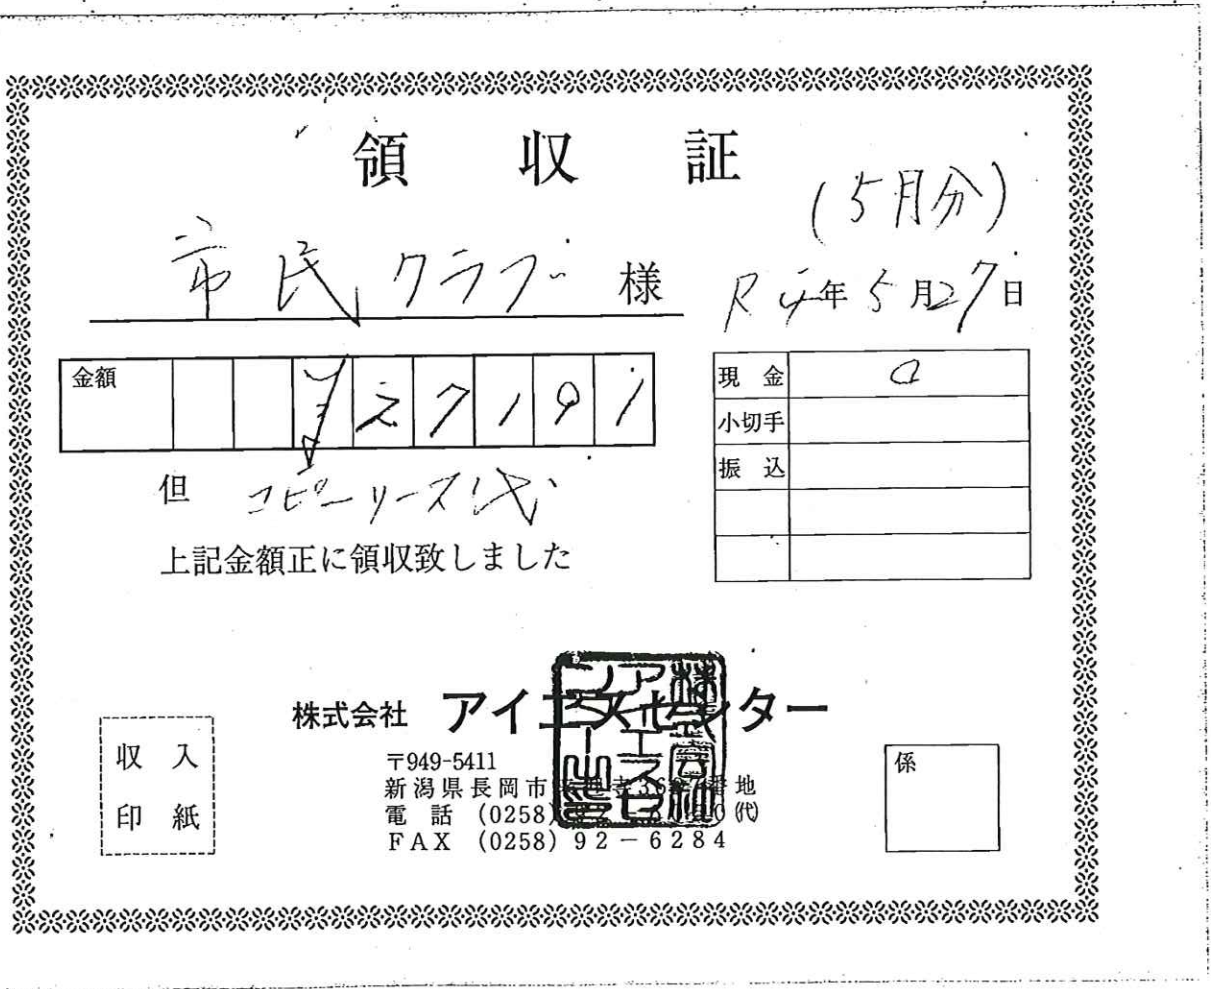 領収証
(5月分)
市民クラブ 様
R4年5月27日
金額 ¥27191
現金
小切手
振込
但 コピーリース代
上記金額正に領収致しました
株式会社 アイエスセンター
〒949-5411
新潟県長岡市
電話 (0258)
FAX (0258) 92-6284
収入
印紙
係